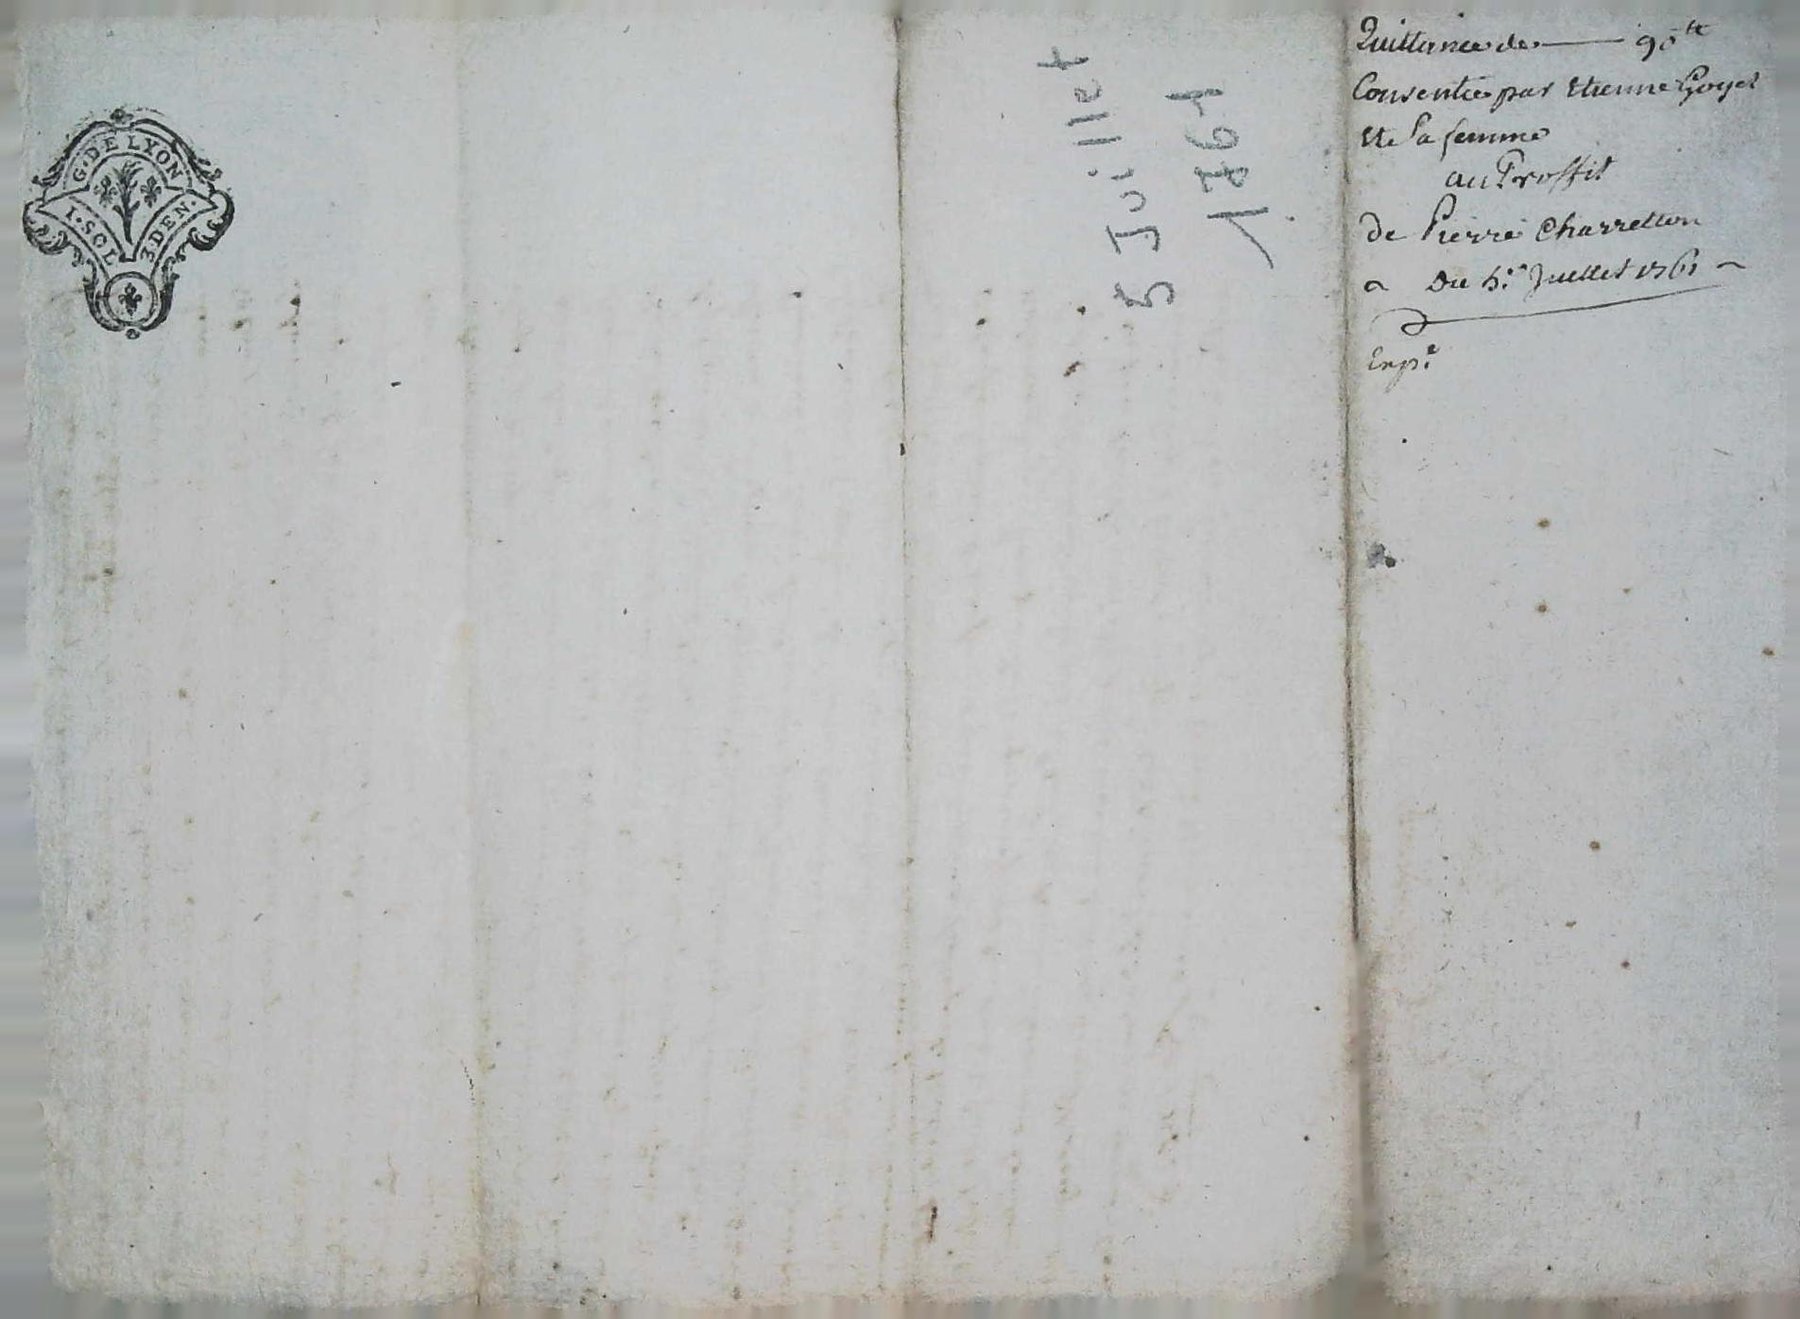 G. DE LYON
I. SOL 3 DEN.
5 Juillet
1761
Quittance de ——— 90tt
Consentie par Etienne Goyet
Et Sa femme
au Proffit
de Pierre Charretton
Du 5.e Juillet 1761
Exp.e